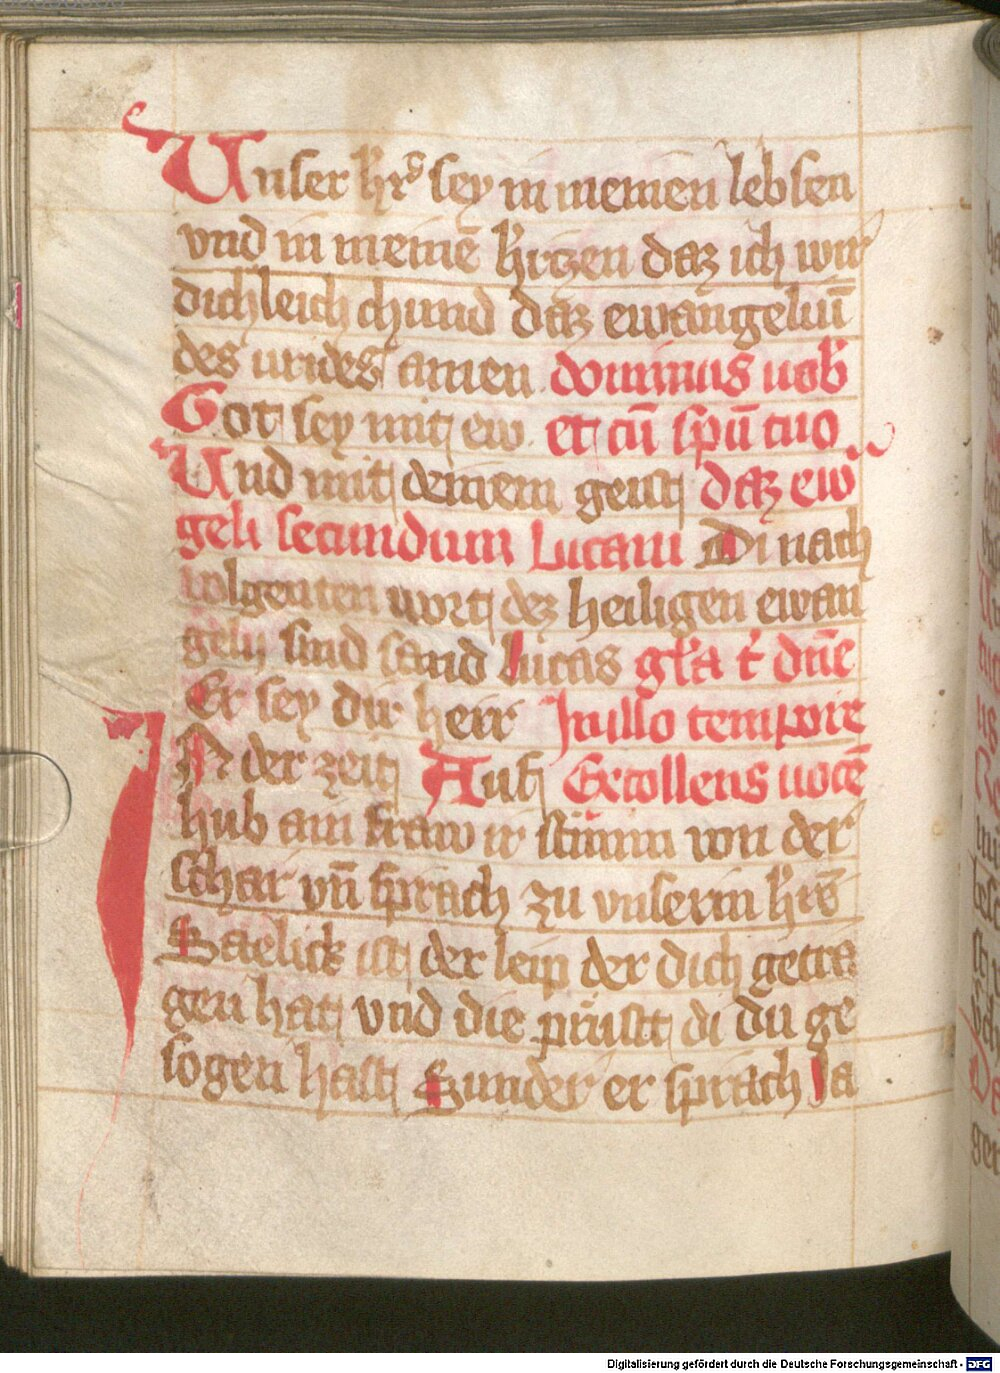 Unser hrͤ sey in meinen lebsen
vnd in meinē hͤrczen daz ich wir
dichleich chund daz ewangeliūm
des vrides amen dominus uob
Got sey mit ew et cū spū tuo
Und mit deinem geist daz ewͣ
geli secundum Lucam Di nach
uolgenten wort dez heiligen ewan
gely sind sand Lucas gl̄a t̄ dn̄e
Er sey dir herr In illo tempore
IN der zeit Auf Extollens uocē
hub ain fraw ir stimm von der
schar vn̄ sprach zu vnserm hr̄n
Saelick ist der leip der dich getra
gen hat vnd die prüst di du ge
sogen hast Sunder er sprach Ja
Digitalisierung gefördert durch die Deutsche Forschungsgemeinschaft - DFG